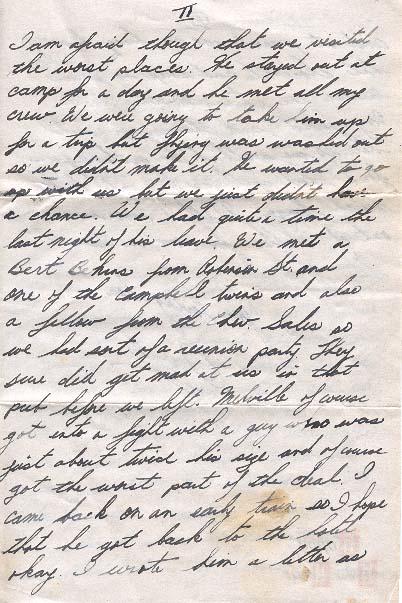 II
I am afraid though that we visited
the worst places. He stayed out at
camp for a day and he met all my
crew. We were going to take him up
for a trip but flying was washed out
so we didn't make it. He wanted to go
up with us but we just didn't have
a chance. We had quite a time the
last night of his leave. We met a
Bert from Robinson St. and
one of the Campbell twins and also
a fellow from the Chev. Sales so
we had sort of a reunion party. They
sure did get mad at us in that
pub before we left. Melville of course
got into a fight with a guy who was
just about twice his size and of course
got the worst part of the deal. I
came back on an early train so I hope
that he got back to the hotel
okay. I wrote him a letter as